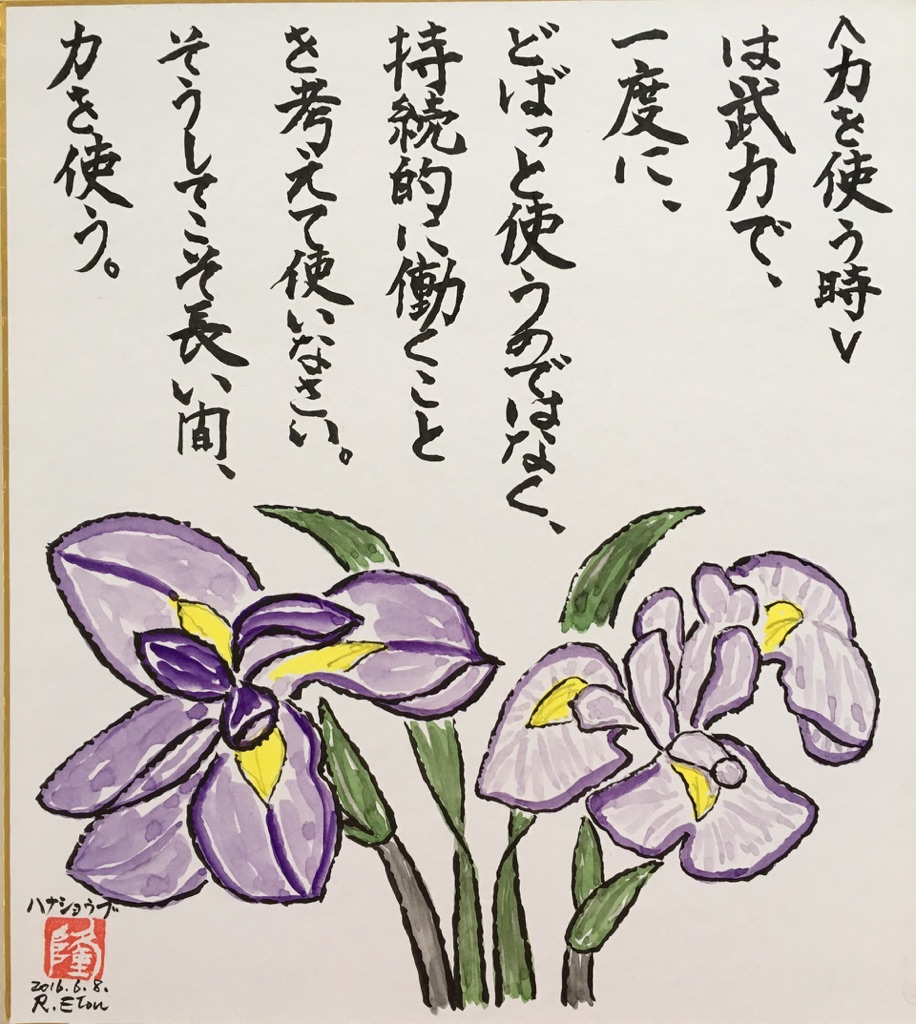 <力を使う時>
は武力で、
一度に、
どばっと使うのではなく、
持続的に働くこと
を考えて使いなさい。
そうしてこそ長い間、
力を使う。
ハナショウブ
隆
2016.6.8.
R.Eton